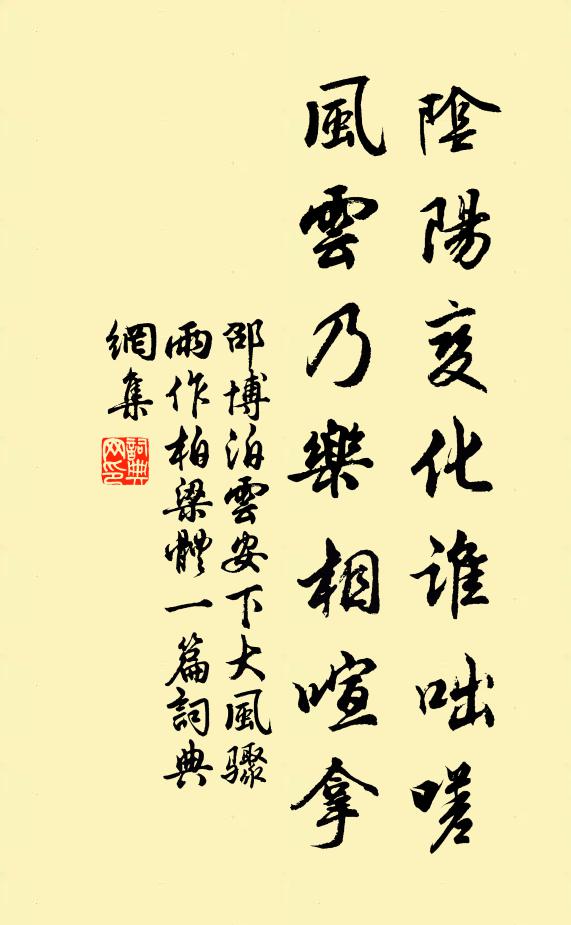 陰陽変化誰咄嗟
風雲乃樂相喧拿
邵博泊雲安下大風驟
雨作柏梁體一篇詞典
網集
詞典
网印